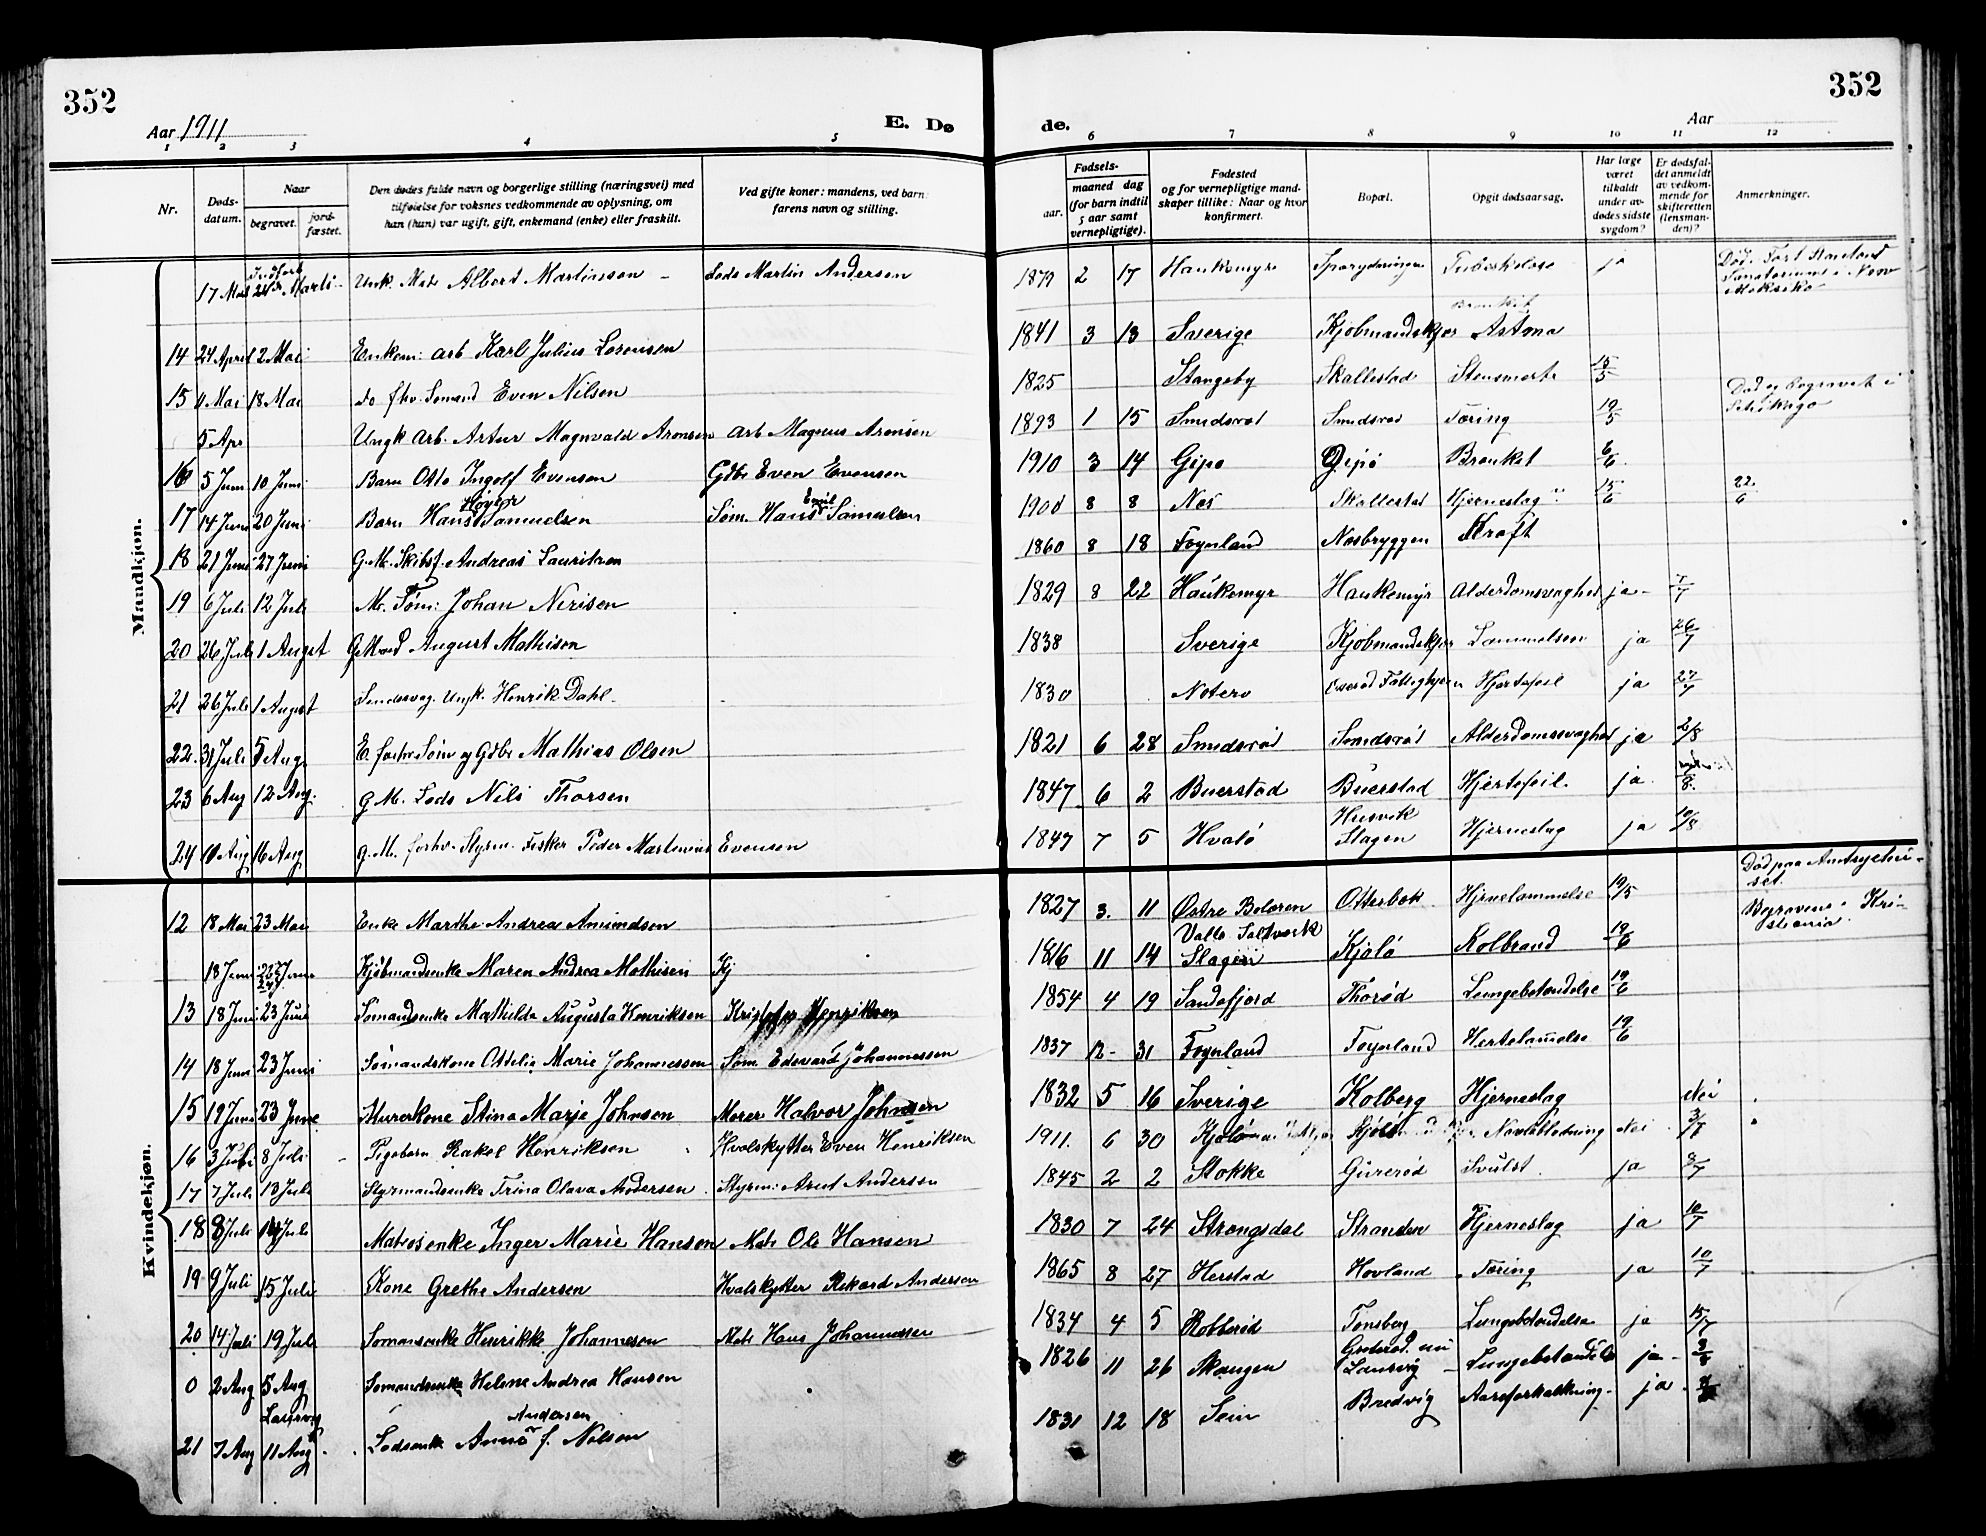 352
352
Aar 1911
E. Dø
de.
Aar
1 2 3 4 5 6 7 8 9 10 11 12
Nr.
Døds-
datum.
Naar
begravet.
jords-
fæstet.
Den dødes fulde navn og borgerlige stilling (næringsvei) med
tilføielse for voksnes vedkommende av oplysning, om
han (hun) var ugift, gift, enkemand (enke) eller fraskilt.
Ved gifte koner: mandens, ved barn:
farens navn og stilling.
Fødsels-
aar.
maaned dag
(for barn indtil
5 aar samt
vernepligtige).
Fødested
og for vernepligtige mand-
skaper tillike: Naar og hvor
konfirmert.
Bopæl.
Opgit dødsaarsag.
Har læge
været
tilkaldt
under av-
dødes sidste
sygdom?
Er dødsfal-
det anmeldt
av vedkom-
mende for
skifteretten
(lensman-
den)?
Anmerkninger.
Mandkjøn.
17 Mars Ungk. Mats Albert Martinsen Lods Martin Andersen 1879 2 17 Haukemyr Tuberkulose ja Død. Fort Stanton Sanatorium i New Meksiko
14 24 April 2 Mai Enkem: arb Karl Julius Lorensen 1841 3 13 Sverige Kjøbmandskjær Bronkit Astma
15 11 Mai 18 Mai do fhv. Sømand Even Nilsen 1825 Stangeby Skallestad Stensmerte 15/5
5 Apr Ungk arb. Artur Magnvald Aronsen arb Magnus Aronsen 1893 1 15 Smidsrød Smidsrød Tæring 19/5 Død og begravet i Schikago
16 5 Juni 10 Juni Barn Otto Ingolf Evensen Gdbr Even Evensen 1910 3 14 Gipø Gipø Bronkit 6/6
17 14 Juni 20 Juni Barn Hans Holger Samuelsen Søm. Hans Emil Samuelsen 1908 8 8 Nes Skallestad Hjerneslag 15/6 22/6
18 21 Juni 27 Juni G.M. Skibsf. Andreas Lauritsen 1860 8 18 Føynland Nesbryggen Kræft
19 6 Juli 12 Juli M. Tøm: Johan Nerisen 1829 8 22 Haukemyr Haukemyr Alderdomssvaghed ja 7/7
20 26 Juli 1 August August Mathisen 1838 Sverige Kjøbmandskjær Lammelsen ja 26/7
21 26 Juli 1 August Sindssvag. Ungk. Henrik Dahl 1830 Nøterø Fattighjem Hjertefeil ja 27/7
22 31 Juli 5 Aug E. forhv Søm og Gdbr Mathias Olsen 1821 6 28 Smidsrød Smidsrød Alderdomssvaghed ja 2/8
23 6 Aug 12 Aug. G.M. Lods Nils Thorsen 1847 6 2 Buerstad Buerstad Hjertefeil. ja
24 16 Aug G.M. forhv. Styrm. Fisker Peder Martinius Evensen 1847 7 5 Hvalø Husvik Slagen Hjerneslag ja 10/8
Kvindekjøn.
12 18 Mai 23 Mai Enke Marthe Andrea Amundsen 1827 3. 11 Østre Bolæren Otterbek Hjernelammelse 19/5 Død paa Amtsygehuset.
18 Juni Juni Kjøbmandsenke Maren Andrea Mathisen Kj 1846 11 14 Vallø Saltverk Slagen Kjøle Kolbrand 19/6 Begravens i Kristiania
13 18 Juni 23 Juni Sømandsenke Mathilde Augusta Henriksen Kristofer Henriksen 1854 4 19 Sandefjord Thorød Lungebetændelse 19/6
14 18 Juni 23 Juni Sømandskone Ottelie Marie Johannessen Søm. Edevard Johannessen 1837 12 31 Føynland Føynland Hertelammelse 19/6
15 19 Juni 23 Juni Murerkone Stina Marje Johnsen Murer Halvor Johnsen 1832 5 16 Sverige Kolberg Hjerneslag Nei
16 3 Juli 8 Juli Pigebarn Rakel Henriksen Hvalskytter Even Henriksen 1911. 6 30 Nei 3/7
17 7 Juli 13 Juli Styrmandsenke Trina Olava Andersen Styrm: Arnt Andersen 1845 2 2 Stokke Gurerød Svulst ja 8/7
18 8 Juli 14 Juli Matrosenke Inger Marie Hansen Matr. Ole Hansen 1830 7 24 Strengsdal Stranden Hjerneslag ja 10/7
19 9 Juli 15 Juli Kone Grethe Andersen Hvalskytter Rikard Andersen 1865 8 27 Herstad Hovland Tæring ja 10/7
20 14 Juli 19 Juli Sømansenke Henrikke Johannesen Matr Hans Johannessen 1834 4 5 Robberød Tønsberg Lungebetændelse ja 15/7
0 2 Aug 5 Aug Laurvig Sømandsenke Helene Andrea Hansen 1826 11 26 Skaugen Laurvig Lungebetændelse ja 3/8
21 7 Aug 11 Aug Lodsenke Anne Andersen f. Nilsen 1831 12 18 Sein Bredvig Aareforkalkning ja